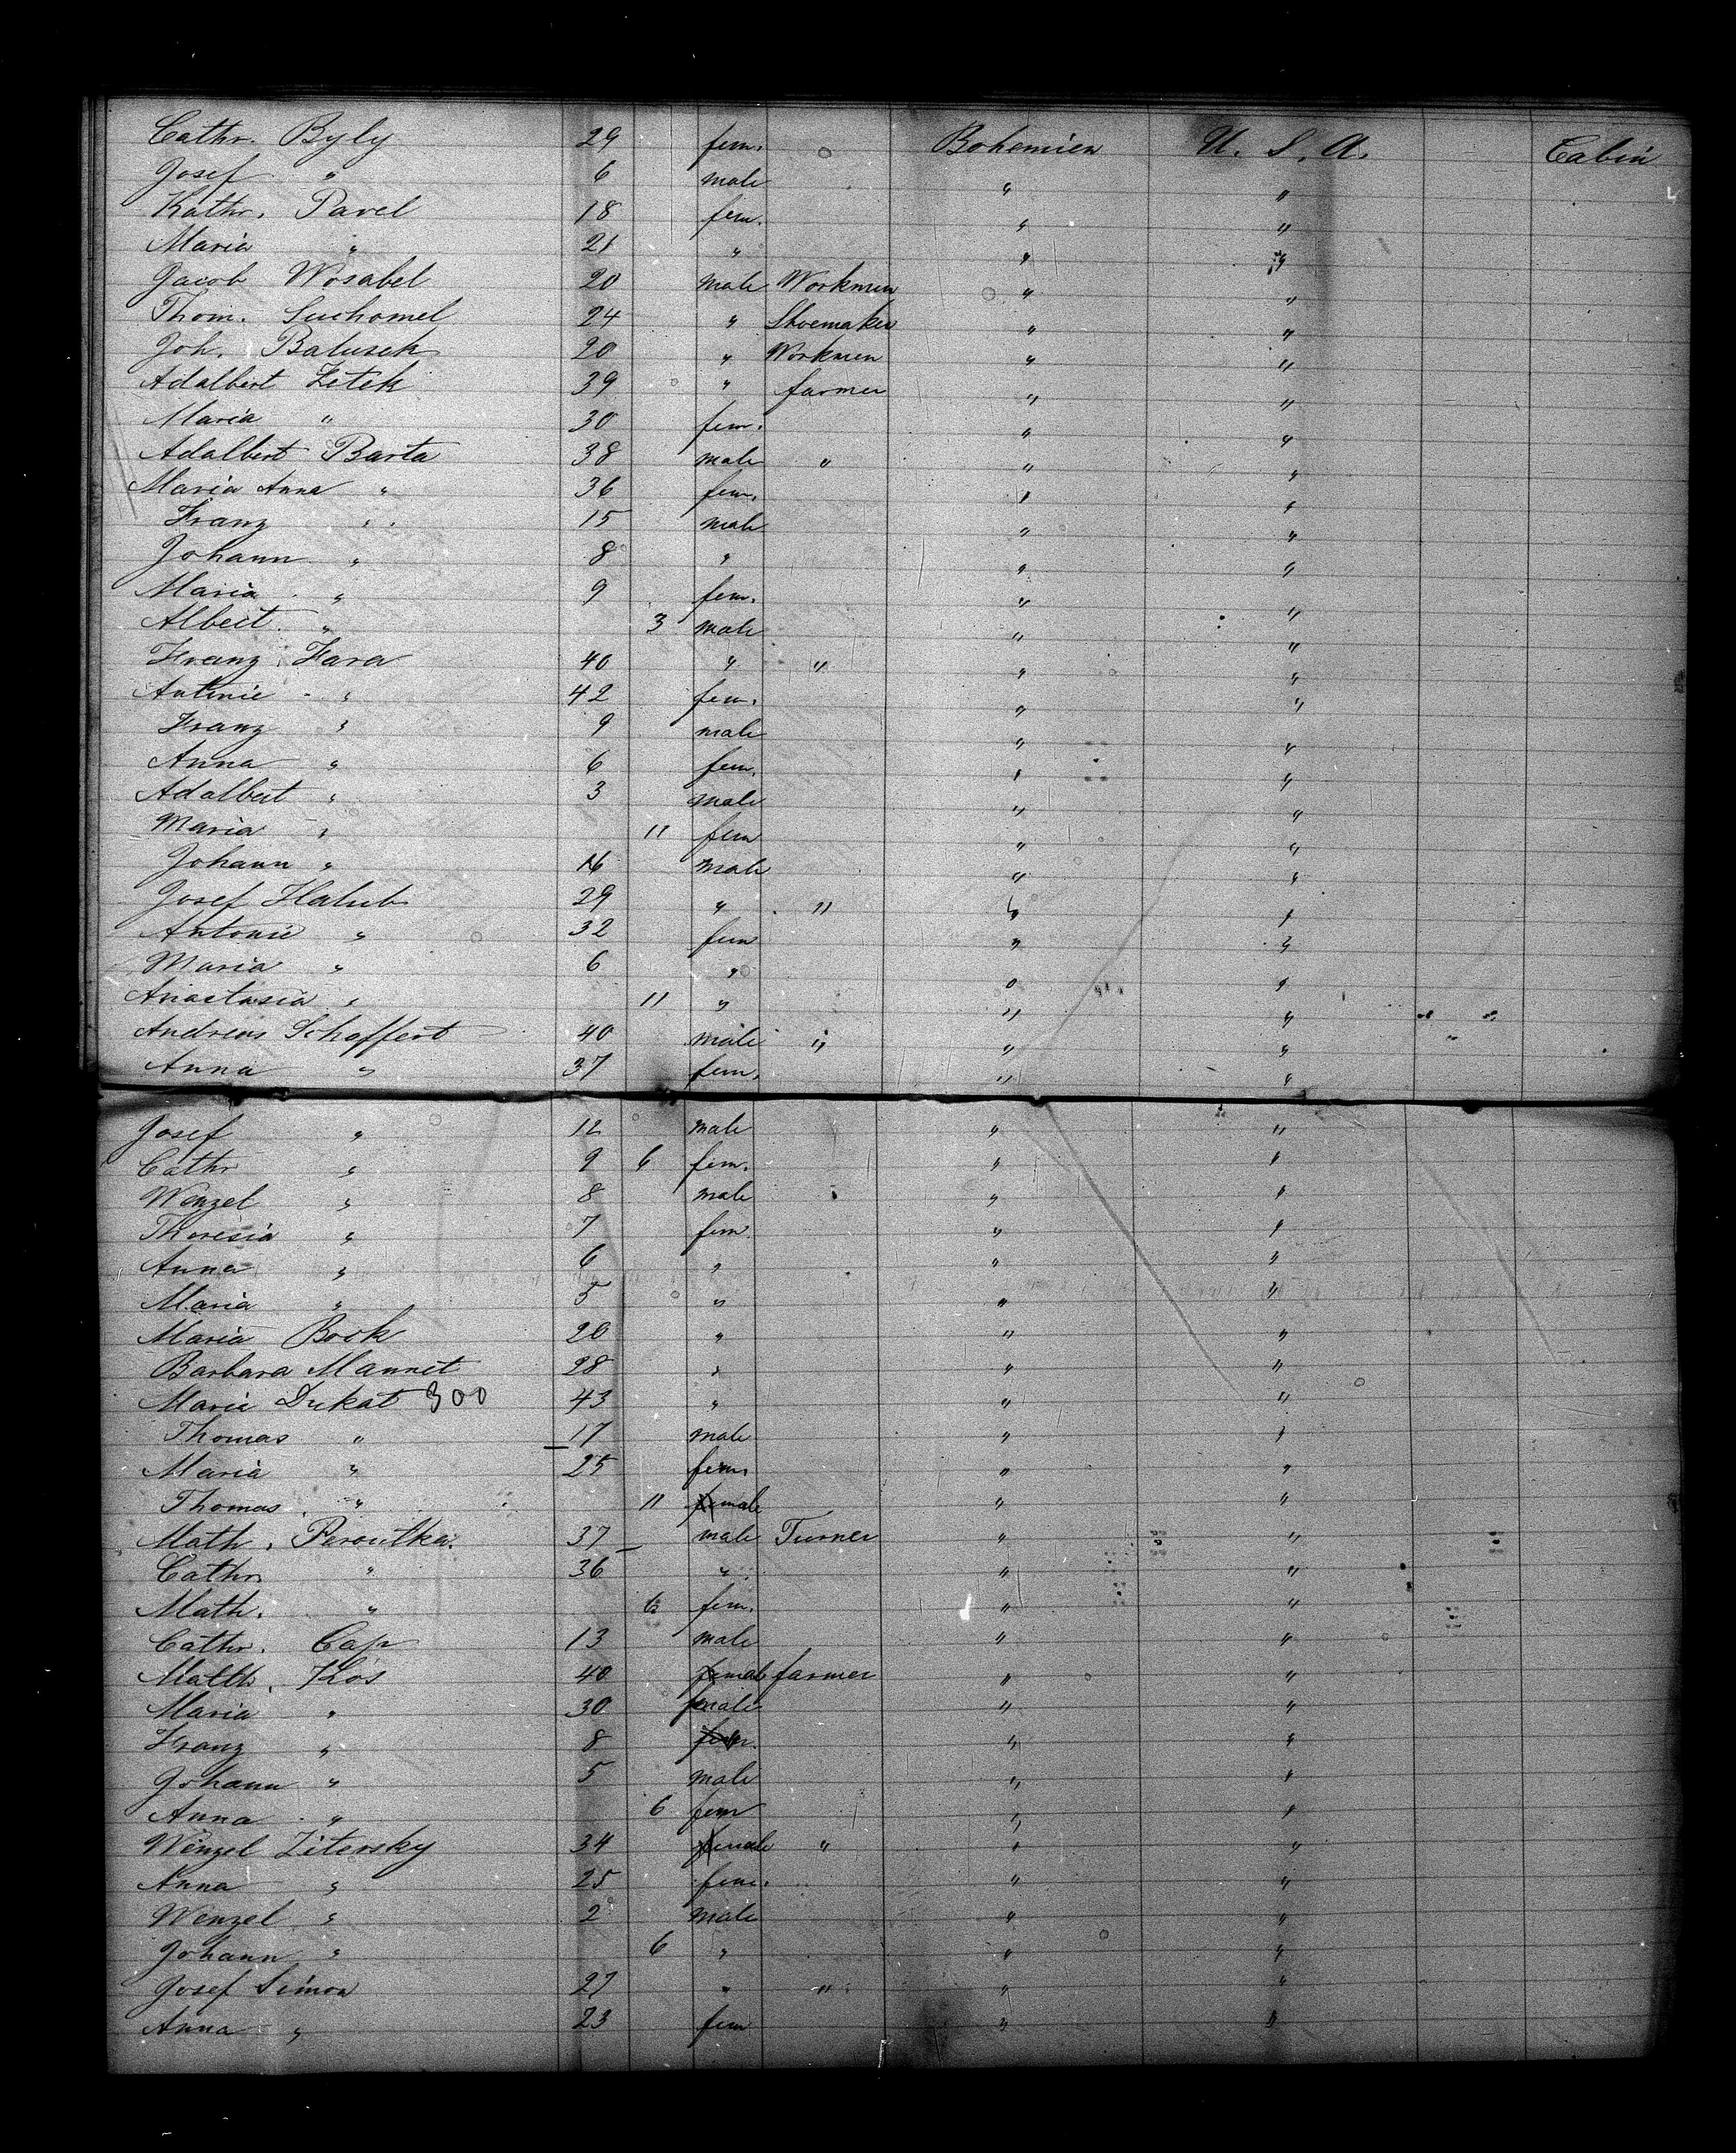 Cathr. Byly 29 fem. Bohemien U. S. A. Cabin
Josef " 6 male " "
Kathr. Pavel 18 fem. " "
Maria " 21 " " "
Jacob Wosabel 20 male Workmen " "
Thom. Suchomel 24 " Shoemaker " "
Joh. Balusek 20 " Workmen " "
Adalbert Zetek 39 " farmer " "
Maria " 30 fem. " "
Adalbert Barta 38 male " " "
Maria Anna " 36 fem. " "
Franz " 15 male " "
Johann " 8 " " "
Maria " 9 fem. " "
Albert " 3 male " "
Franz Fara 40 " " " "
Antonie " 42 fem. " "
Franz " 9 male " "
Anna " 6 fem. " "
Adalbert " 3 male " "
Maria " 11 fem " "
Johann " 16 male " "
Josef Halub 29 " " " "
Antonie " 32 fem " "
Maria " 6 " " "
Anastasia " 11 " " "
Andreas Schaffert 40 male " " "
Anna " 37 fem. " "
Josef " 12 male " "
Cathr " 9 6 fem. " "
Wenzel " 8 male " "
Theresia " 7 fem. " "
Anna " 6 " " "
Maria " 5 " " "
Maria Book 20 " " "
Barbara Mannet 28 " " "
Maria Dukat 300 43 " " "
Thomas " 17 male " "
Maria " 25 fem. " "
Thomas " 11 male " "
Math. Peroutka. 37 male Turner " "
Cathr. " 36 " " "
Math. " 6 fem. " "
Cathr. Cap 13 male " "
Math. Kos 40 male farmer " "
Maria " 30 female " "
Franz " 8 fem. " "
Johann " 5 male " "
Anna " 6 fem " "
Wenzel Zitersky 34 male " " "
Anna " 25 fem. " "
Wenzel " 2 male " "
Johann " 6 " " "
Josef Simon 27 " " " "
Anna " 23 fem " "